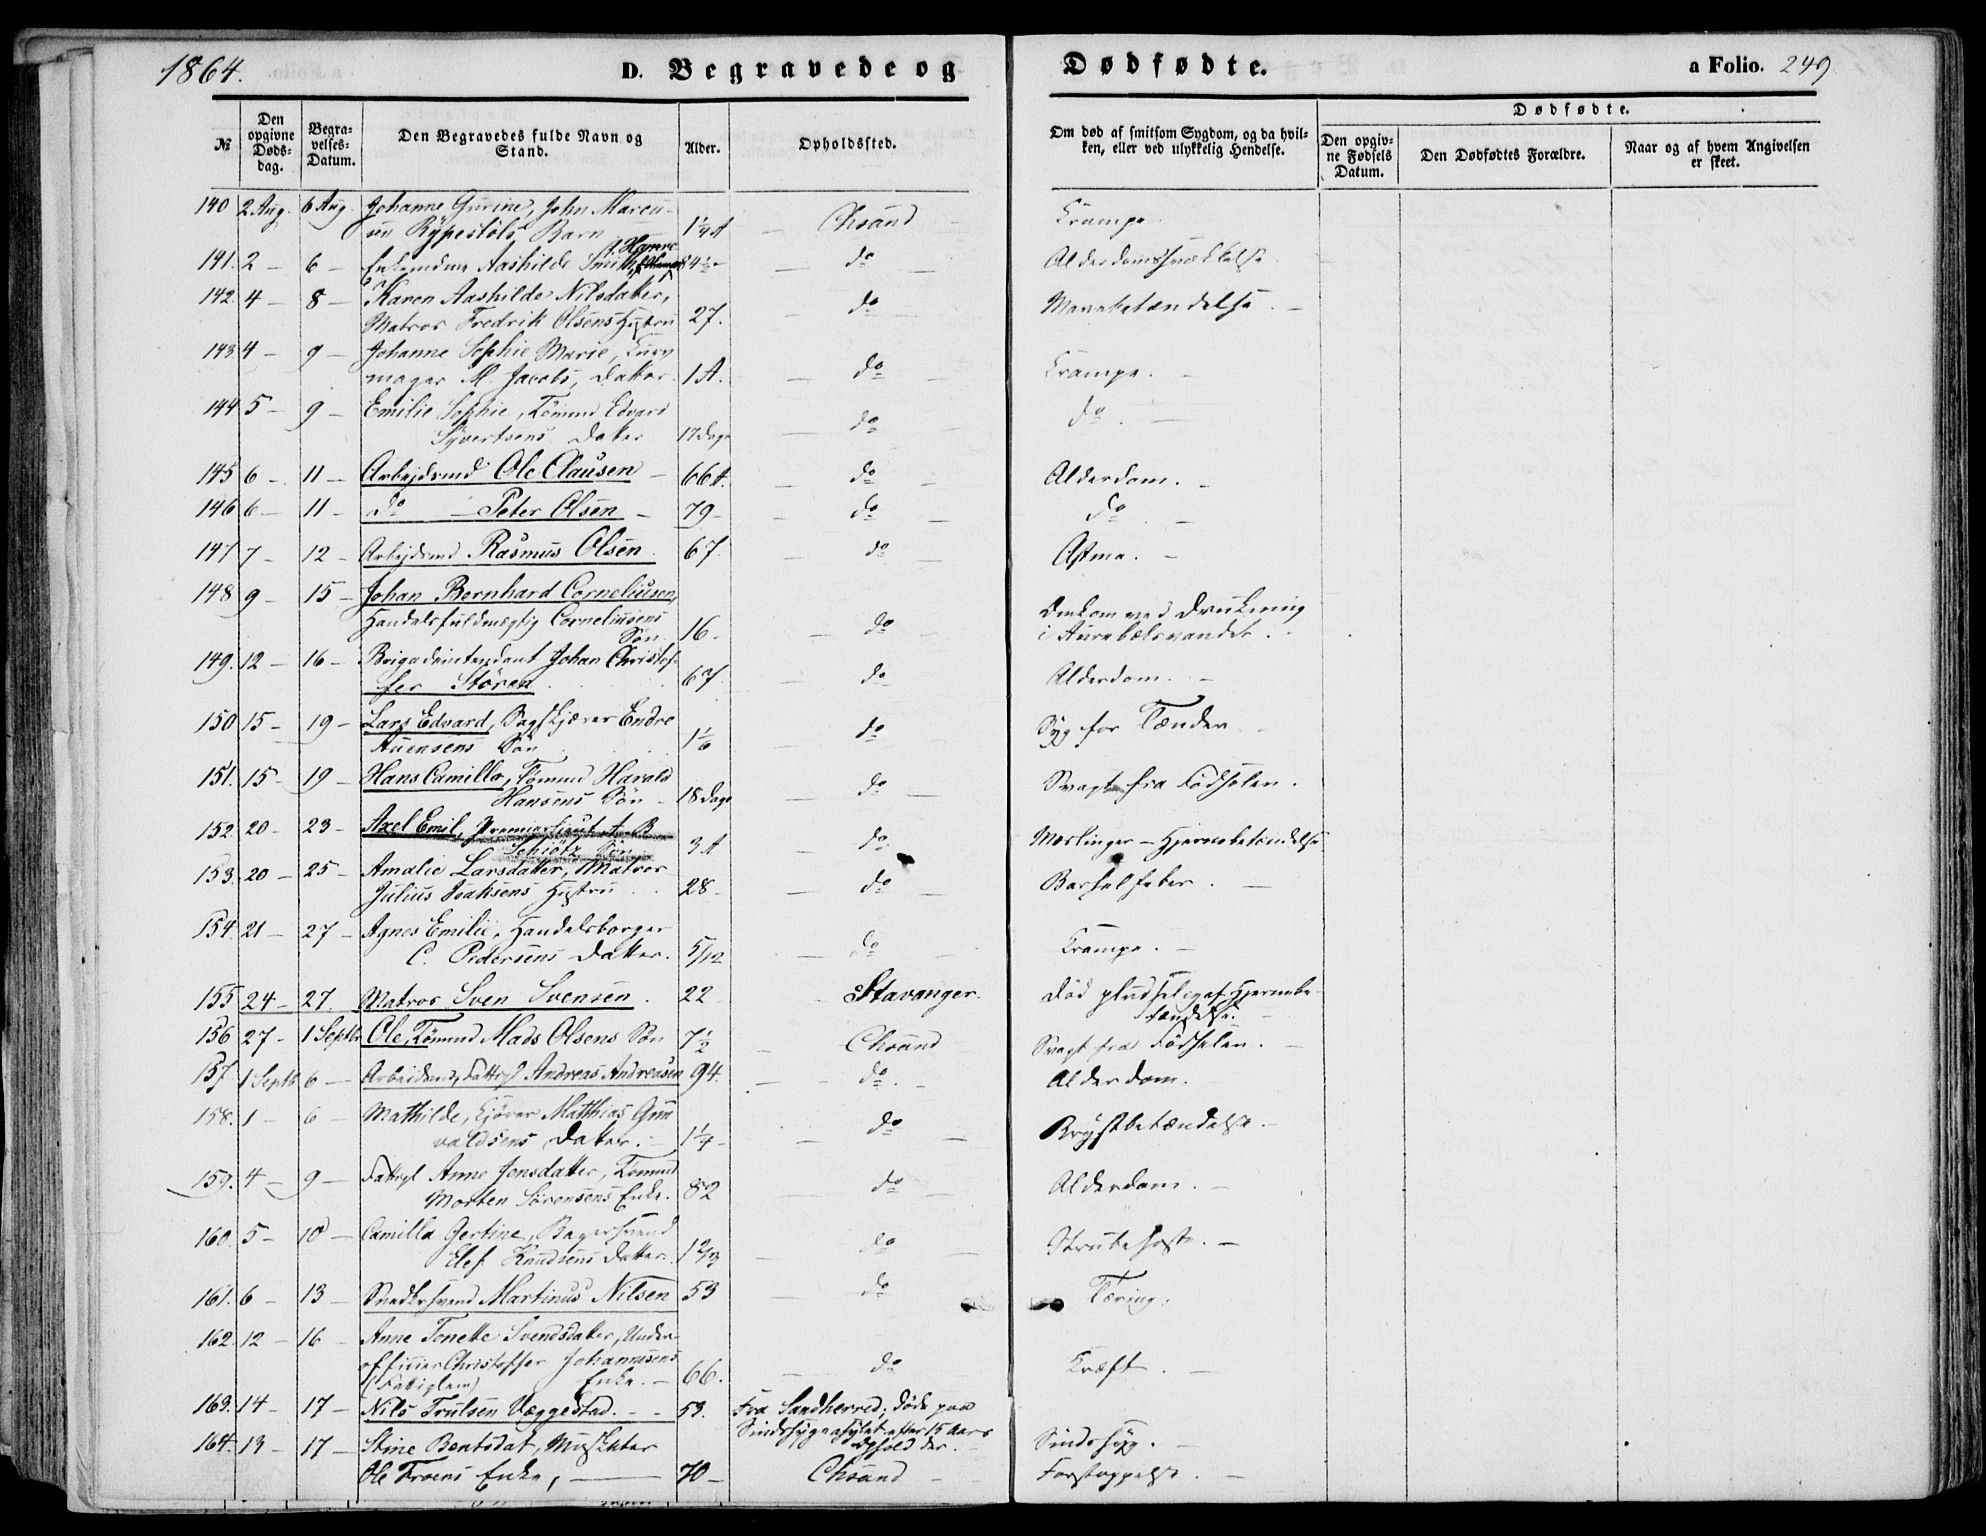 1864.
D. Begravede og
Dødfødte.
a Folio. 249
№
Den opgivne Døds-dag.
Begra-velses-Datum.
Den Begravedes fulde Navn og Stand.
Alder.
Opholdsted.
Om død af smitsom Sygdom, og da hvil-ken, eller ved ulykkelig Hendelse.
Dødfødte.
Den opgiv-ne Fødsels Datum.
Den Dødfødtes Forældre.
Naar og af hvem Angivelsen er skeet.
140 2 Aug. 6 Aug. Johanne Gurine, John Marcu-
sen Rypestøls Barn 1¼ A Chsand Krampe
141. 2 – 6 – Enkemdme Aashilde Smith, f. Hamre 84½ do Alderdomssvækkelse
142. 4 – 8 – Karen Aashilde Nilsdatter,
Matros Fredrik Olsens Hustru 27. do Mavebetændelse. –
143. 4 – 9 – Johanne Sophie Marie, Kurv
mager M. Jacobs, Datter. 1 A. do Krampe. –
144 5 – 9 – Emilie Sophie, Tømmd Edvard
Syvertsens Datter 17 Dage do do.
145 6 – 11 – Arbejdsmd Ole Clausen – 66 A. do Alderdom. –
146 6 – 11 – do – Peter Olsen – 79 – do do –
147 7 – 12 – Arbejdsmd Rasmus Olsen. 67. do Astma. –
148 9 – 15 – Johan Bernhard Corneliusen,
Handelsfuldmægtig Corneliusens
Søn. 16. do Omkom ved Drukning
i Aurebæksvandet.
149. 12 – 16 – Brigadeintendant Johan Christof-
fer Støren 67 do Alderdom. –
150 15 – 19 – Lars Edvard, Sagskjærer Endre
Auensens Søn 1⅙ do Syg for Tænder
151. 15 – 19 – Hans Camillo, Tømmd Harald
Hansens Søn – 18 Dage do Svagt fra Fødselen.
152. 20 – 23 – Axel Emil, Premierlieut. A. B.
Schiøtz Søn. 3 A do. Meslinger – Hjernebetændelse
153. 20 – 25 – Amalie Larsdatter, Matros
Julius Isaksens Hustru 28 – do Barselfeber. –
154. 21 – 27 – Agnes Emilie, Handelsborger
C. Pedersens Datter. 5/12 do Krampe. –
155 24 – 27. Matros Sven Svensen. 22 Stavanger. Død pludselig af Hjernebe-
tændelse. –
156 27 – 1 Septbr Ole, Tømmd Mads Olsens Søn 7½ Chsand Svagt fra Fødselen. –
157. 1 Septb 6 – Arbeidsmd, Fattigl Andreas Andreasen 94. do. Alderdom.
158. 1 – 6 – Mathilde, Kjører Matthias Gun
valdsens Datter. – 1¼ – do Brystbetændelse. –
159. 4 – 9 – Fattigl Anne Jensdatter, Tømmd
Morten Sørensens Enke. 82 do Alderdom. –
160. 5 – 10 – Camilla Gertine, Bagersvend
Elef Knudsens Datter. 1⅔ do Strubehoste. –
161. 6 – 13 – Snedkersvend Martinus Nilsen 53 do Tæring.
162. 12 – 16 – Anne Tonette Svendsdatter, Under-
officier Christoffer Johannesens
(Fattiglem) Enke. – 66. do Kræft. –
163. 14 – 17 – Nils Trulsen Væggestad. – – 53. Fra Sandherred; døde paa
Sindssygeasylet efter 15 Aars
Ophold der. Sindssyg. –
164. 13 – 17 – Stine Bentsdat, Musketer
Ole Troens Enke, 70 – Chsand Forstoppelse. –